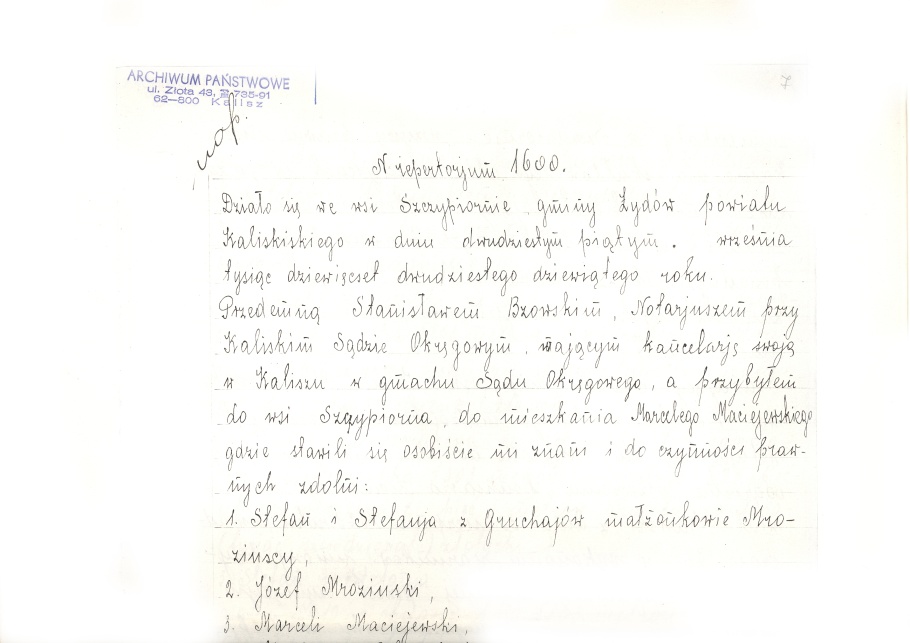 ARCHIWUM PAŃSTWOWE
ul. Złota 43, ☎ 735-91
62—800 Kalisz
7
N repertorjum 1600.
Działo się we wsi Szczypiornie, gminy Żydów powiatu
Kaliskiskiego w dniu dwudziestym piątym. września
tysiąc dziewięćset dwudziestego dziewiątego roku.
Przedemną Stanisławem Bzowskim, Notarjuszem przy
Kaliskim Sądzie Okręgowym, mającym kancelarję swoją
w Kaliszu w gmachu Sądu Okręgowego, a przybyłem
do wsi Szczypiorna, do mieszkania Marcelego Maciejewskiego
gdzie stawili się osobiście mi znani i do czynności praw-
nych zdolni:
1. Stefan i Stefanja z Gruchajów małżonkowie Mro-
zinscy,
2. Józef Mrozinski,
3. Marceli Maciejewski,